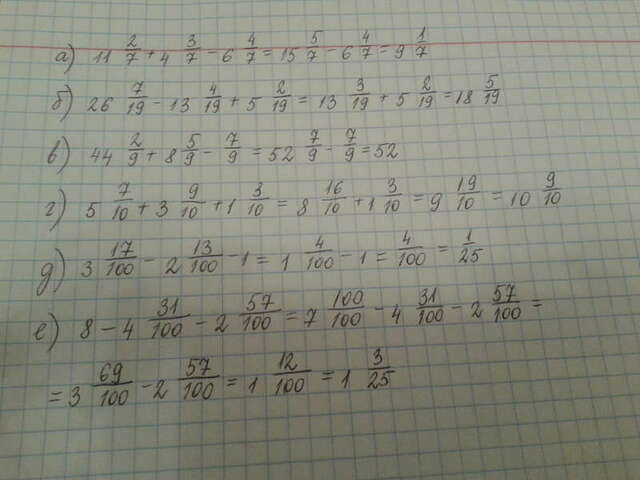 а) 11 2/7 + 4 3/7 - 6 4/7 = 15 5/7 - 6 4/7 = 9 1/7
б) 26 7/19 - 13 4/19 + 5 2/19 = 13 3/19 + 5 2/19 = 18 5/19
в) 44 2/9 + 8 5/9 - 7/9 = 52 7/9 - 7/9 = 52
г) 5 7/10 + 3 9/10 + 1 3/10 = 8 16/10 + 1 3/10 = 9 19/10 = 10 9/10
д) 3 17/100 - 2 13/100 - 1 = 1 4/100 - 1 = 4/100 = 1/25
е) 8 - 4 31/100 - 2 57/100 = 7 100/100 - 4 31/100 - 2 57/100 =
= 3 69/100 - 2 57/100 = 1 12/100 = 1 3/25